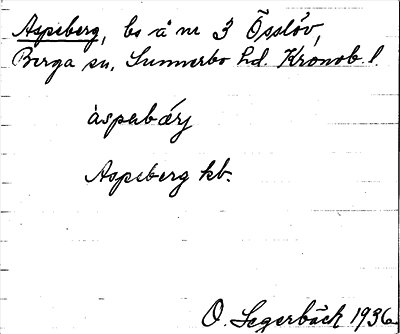 Aspeberg, ls å nr 3 Össlöv,
Berga sn, Sunnerbo hd. Kronob. l.
àspabǽrj
Aspeberg kb.
O. Segerbäck 1936.